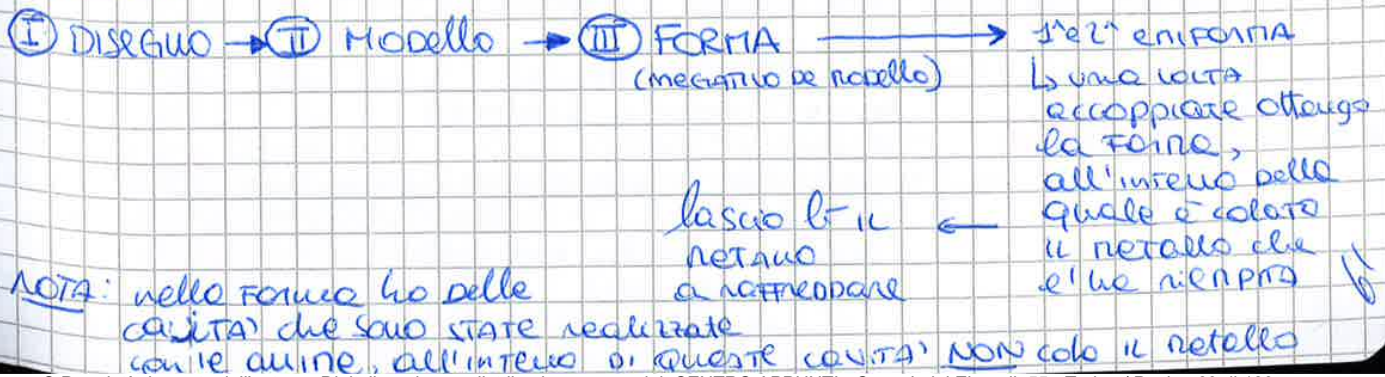 I DISEGNO → II MODELLO → III FORMA → 1ª e 2ª
(NEGATIVO DE MODELLO)
↳ una volta
accoppiate ottengo
la FORMA,
all'interno della
quale è colato
il metallo che
l'ha riempita
← lascio lì il
metallo
a raffreddare
NOTA: nella forma ho delle
cavità che sono state realizzate
con le anime, all'interno di queste cavità NON colo il metallo